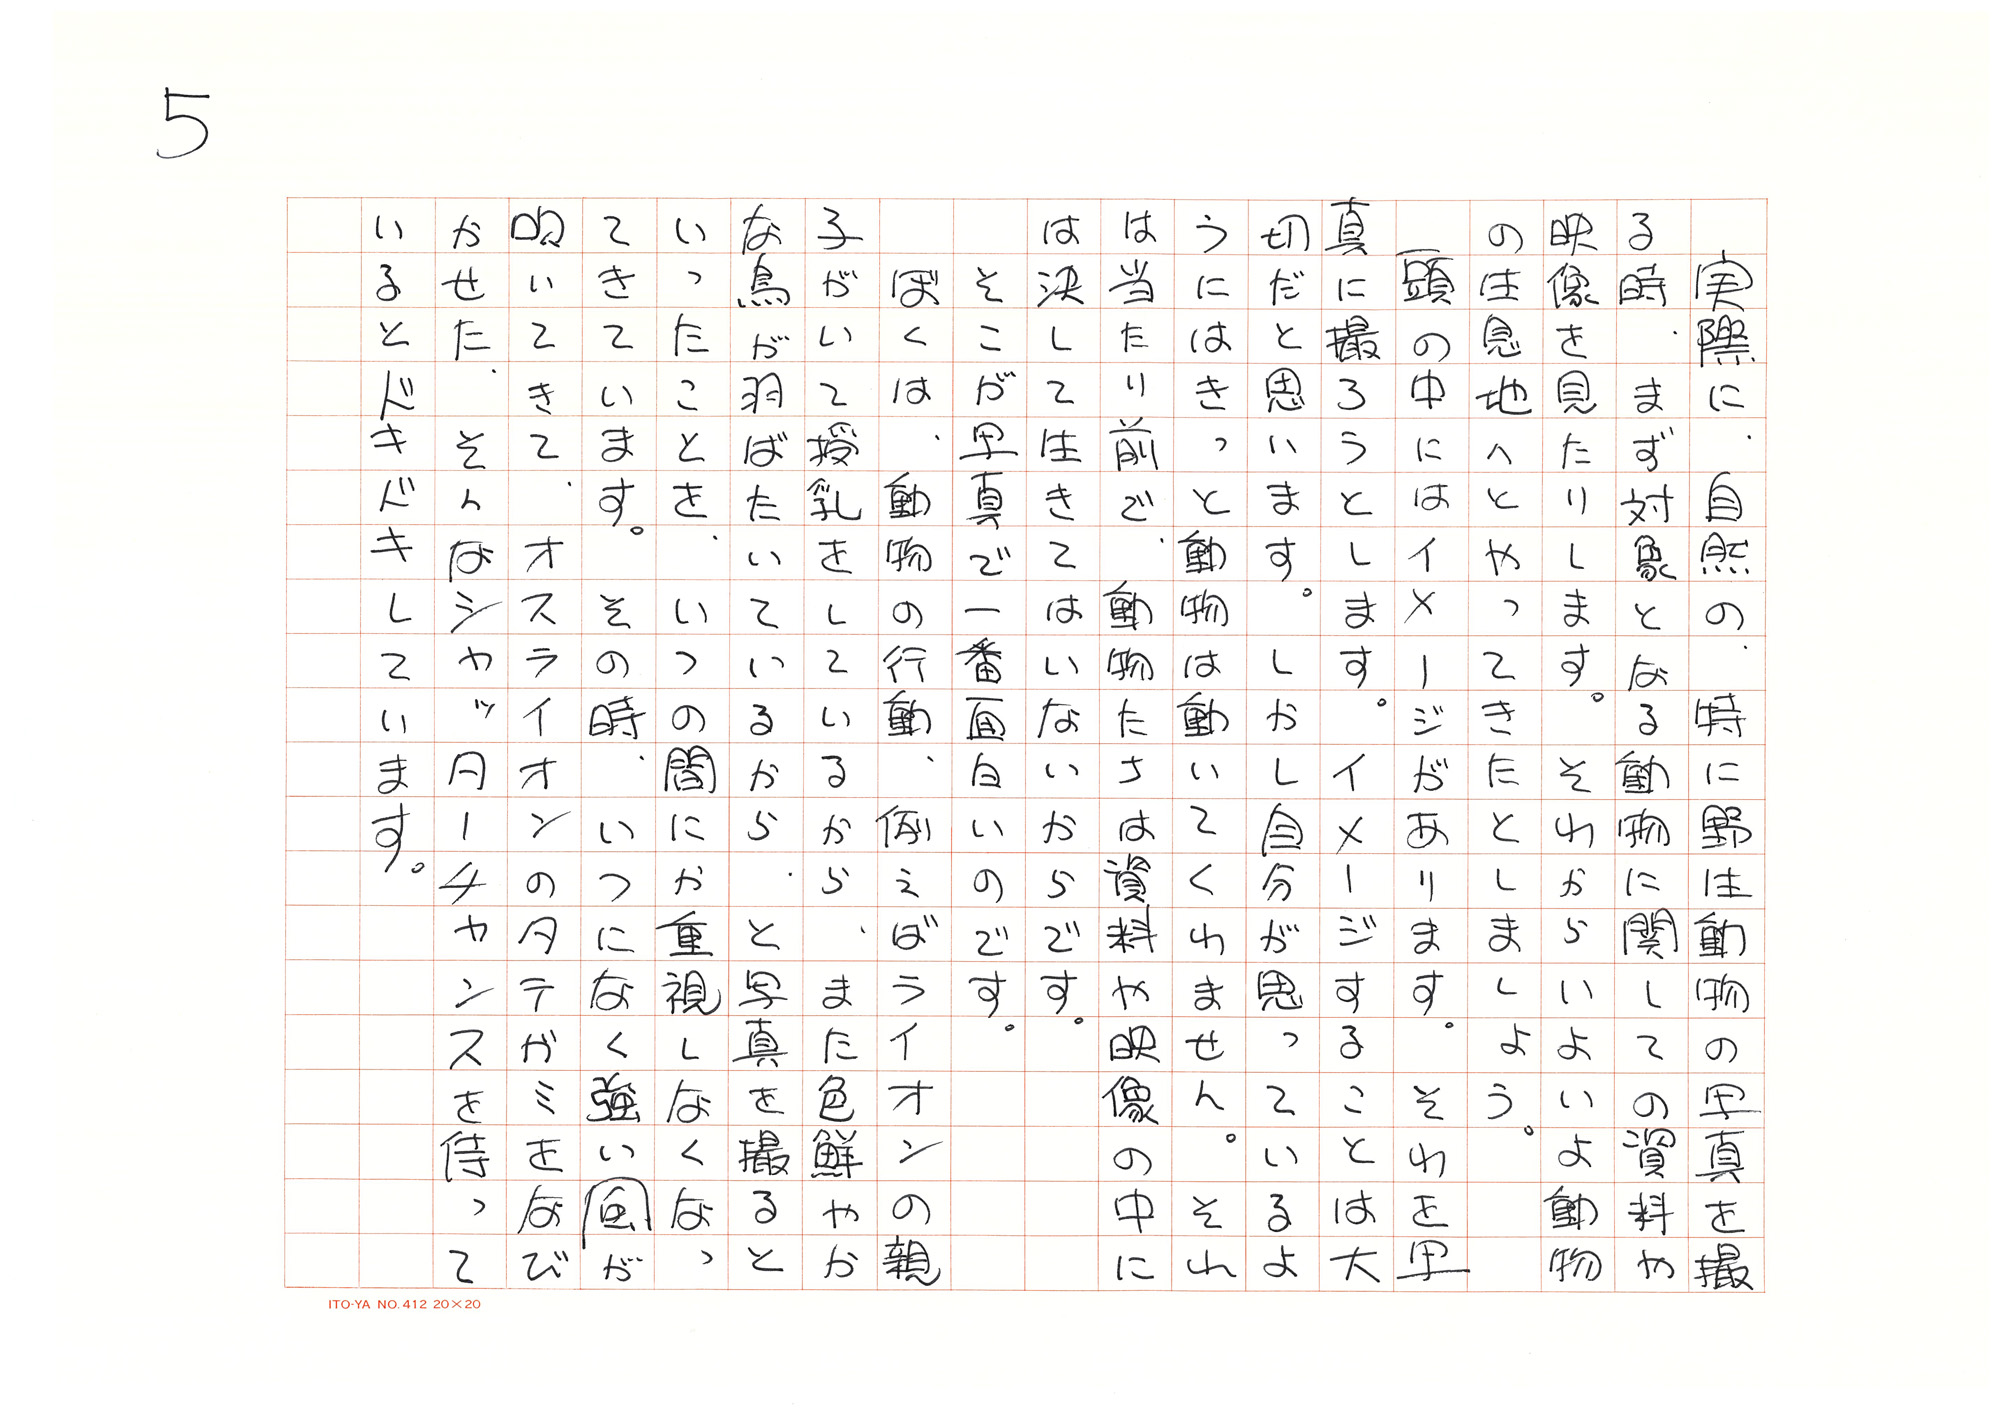 5
実際に、自然の、特に野生動物の写真を撮
る時、まず対象となる動物に関しての資料や
映像を見たりします。それからいよいよ動物
の生息地へとやってきたとしましょう。
頭の中にはイメージがあります。それを写
真に撮ろうとします。イメージすることは大
切だと思います。しかし自分が思っているよ
うにはきっと動物は動いてくれません。それ
は当たり前で、動物たちは資料や映像の中に
は決して生きてはいないからです。
そこが写真で一番面白いのです。
ぼくは、動物の行動、例えばライオンの親
子がいて授乳をしているから、また色鮮やか
な鳥が羽ばたいているから、と写真を撮ると
いったことを、いつの間にか重視しなくなっ
てきています。その時、いつになく強い風が
吹いてきて、オスライオンのタテガミをなび
かせた、そんなシャッターチャンスを待って
いるとドキドキしています。
ITO-YA NO.412 20×20